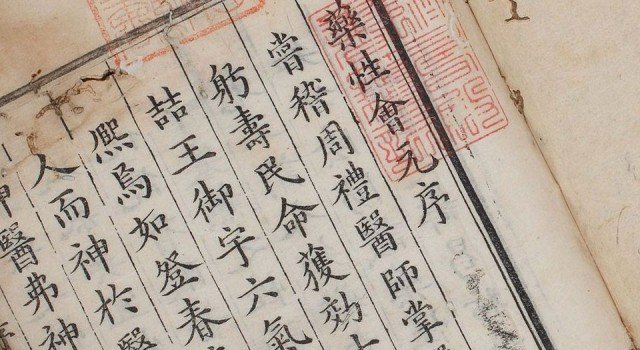 藥性會元序
嘗稽周禮醫師掌
躬壽民命獲効
喆王御宇六氣
熈焉如登春
人而神於醫
神醫弗神